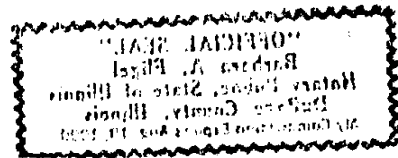 "OFFICIAL SEAL"
Barbara A. Fligel
Notary Public, State of Illinois
DuPage County, Illinois
My Commission Expires Aug. 19,